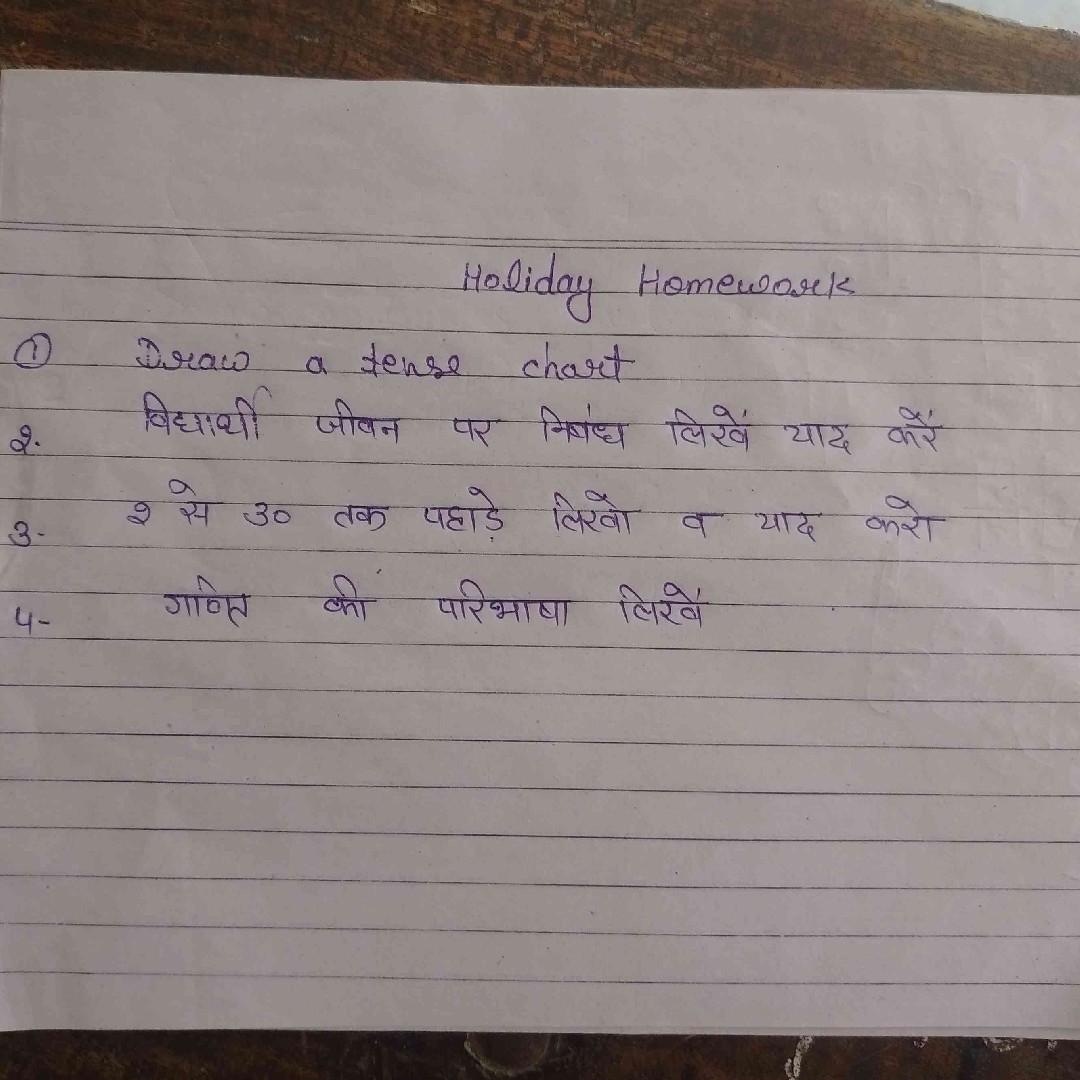 Holiday Homework
① Draw a tense chart
२. विद्यार्थी जीवन पर निबंध लिखें याद करें
३- २ से ३० तक पहाड़े लिखो व याद करो
४- गणित की परिभाषा लिखें